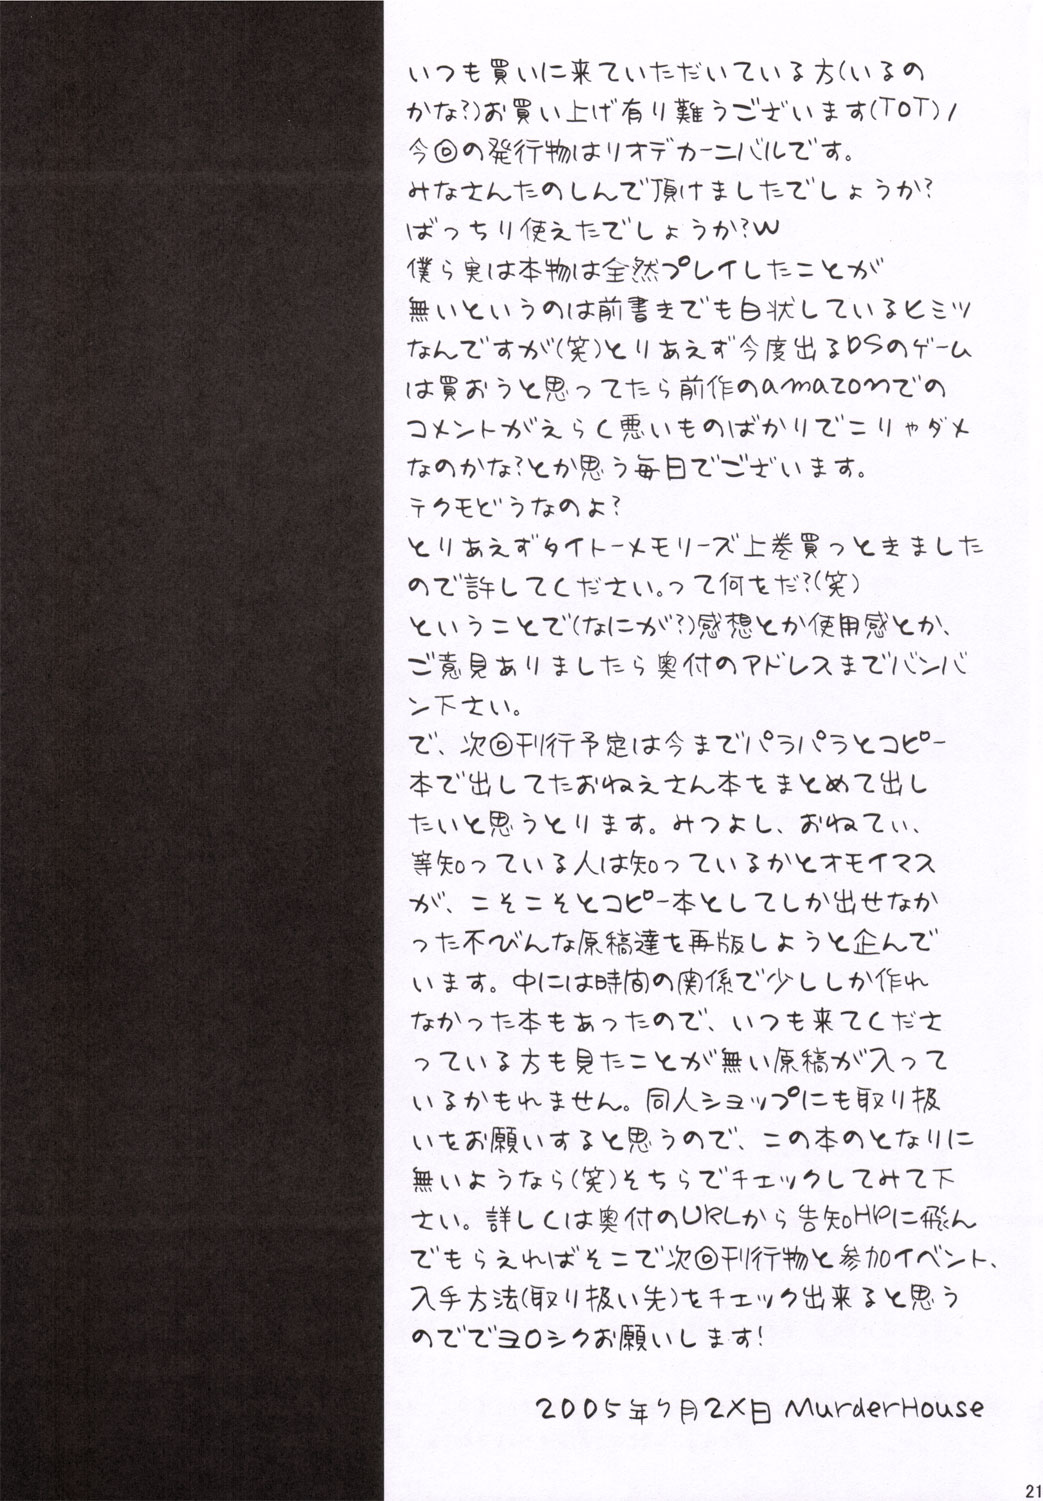 いつも買いに来ていただいている方(いるの
かな?)お買い上げ有り難うございます(TOT)/
今回の発行物はリオデカーニバルです。
みなさんたのしんで頂けましたでしょうか?
ばっちり使えたでしょうか?W
僕ら実は本物は全然プレイしたことが
無いというのは前書きでも白状しているヒミツ
なんですが(笑)とりあえず今度出るDSのゲーム
は買おうと思ってたら前作のamazonでの
コメントがえらく悪いものばかりでこりゃダメ
なのかな?とか思う毎日でございます。
テクモどうなのよ?
とりあえずタイトーメモリーズ上巻買っときました
ので許してください。って何をだ?(笑)
ということで(なにが?)感想とか使用感とか、
ご意見ありましたら奥付のアドレスまでバンバ
ン下さい。
で、次回刊行予定は今までパラパラとコピー
本で出してたおねえさん本をまとめて出し
たいと思うとります。みつよし、おねてぃ、
等知っている人は知っているかとオモイマス
が、こそこそとコピー本としてしか出せなか
った不びんな原稿達を再版しようと企んで
います。中には時間の関係で少ししか作れ
なかった本もあったので、いつも来てくださ
っている方も見たことが無い原稿が入って
いるかもれません。同人ショップにも取り扱
いをお願いすると思うので、この本のとなりに
無いようなら(笑)そちらでチェックしてみて下
さい。詳しくは奥付のURLから告知HPに飛ん
でもらえればそこで次回刊行物と参加イベント、
入手方法(取り扱い先)をチェック出来ると思う
のででヨロシクお願いします!
2005年7月2X日 MurderHouse
21